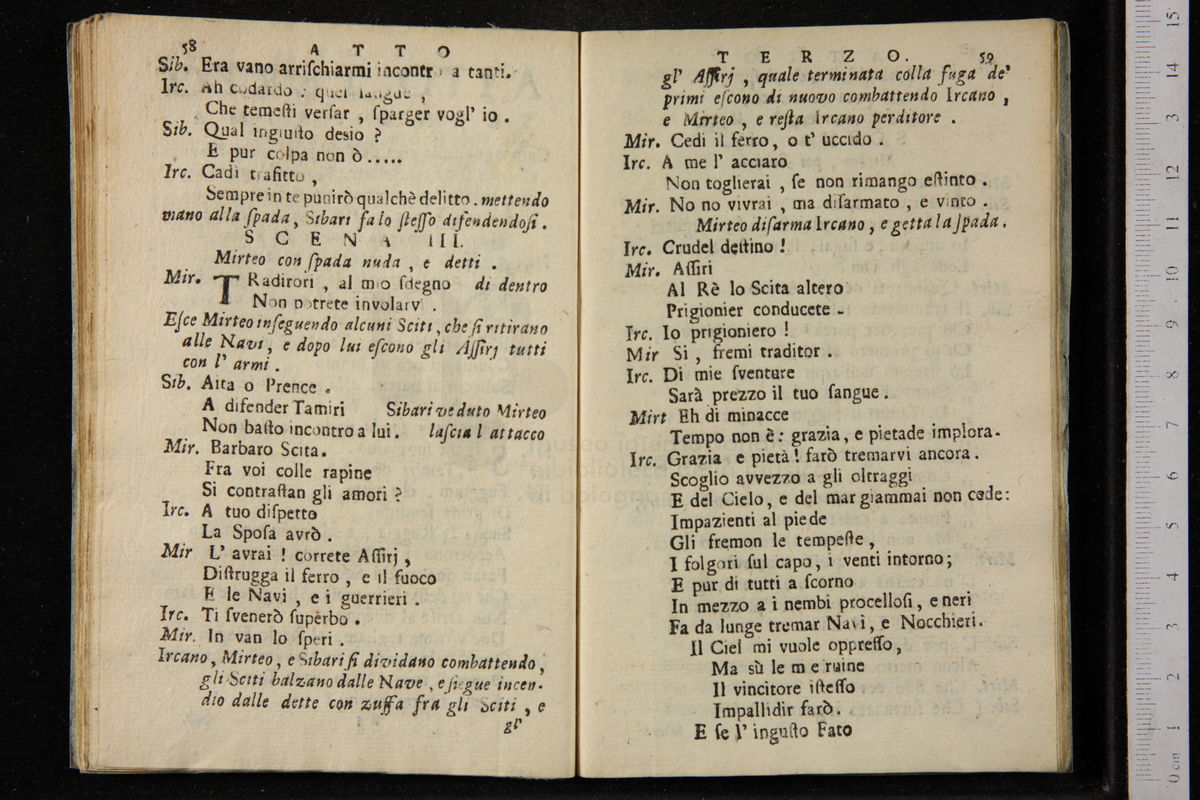 58
A T T O
Sib. Era vano arriſchiarmi incontro a tanti.
Irc. Ah codardo : quel ſangue ,
Che temeſti verſar , ſparger vogl' io .
Sib. Qual ingiuſto desio ?
E pur colpa non ò.....
Irc. Cadi trafitto ,
Sempre in te punirò qualchè delitto . mettendo
mano alla ſpada, Sibari fa lo ſteſſo difendendoſi .
S C E N A III.
Mirteo con ſpada nuda , e detti .
Mir. TRadirori , al mio ſdegno di dentro
Non potrete involarvi .
Eſce Mirteo inſeguendo alcuni Sciti, che ſi ritirano
alle Navi, e dopo lui eſcono gli Aſſirj tutti
con l' armi .
Sib. Aita o Prence .
A difender Tamiri Sibari veduto Mirteo
Non baſto incontro a lui. laſcia l attacco
Mir. Barbaro Scita.
Fra voi colle rapine
Si contraſtan gli amori ?
Irc. A tuo diſpetto
La Spoſa avrò .
Mir L' avrai ! correte Aſſirj ,
Diſtrugga il ferro , e il fuoco
E le Navi , e i guerrieri .
Irc. Ti ſvenerò ſuperbo .
Mir. In van lo ſperi .
Ircano, Mirteo, e Sibari ſi dividano combattendo,
gli Sciti balzano dalle Nave , e ſiegue incen-
dio dalle dette con zuffa fra gli Sciti , e
gl'
T E R Z O.
59
gl' Aſſirj , quale terminata colla fuga de'
primi eſcono di nuovo combattendo Ircano ,
e Mirteo , e reſta Ircano perditore .
Mir. Cedi il ferro, o t' uccido .
Irc. A me l' acciaro
Non toglierai , ſe non rimango eſtinto .
Mir. No no vivrai , ma diſarmato , e vinto .
Mirteo diſarma Ircano, e getta la ſpada.
Irc. Crudel deſtino !
Mir. Aſſiri
Al Rè lo Scita altero
Prigionier conducete .
Irc. Io prigioniero !
Mir Si , fremi traditor .
Irc. Di mie ſventure
Sarà prezzo il tuo ſangue .
Mirt Eh di minacce
Tempo non è : grazia, e pietade implora.
Irc. Grazia e pietà ! farò tremarvi ancora.
Scoglio avvezzo a gli oltraggi
E del Cielo, e del mar giammai non cede:
Impazienti al piede
Gli fremon le tempeſte,
I folgori ſul capo, i venti intorno;
E pur di tutti a ſcorno
In mezzo a i nembi procelloſi, e neri
Fa da lunge tremar Navi, e Nocchieri.
Il Ciel mi vuole oppreſſo,
Ma sù le mie ruine
Il vincitore iſteſſo
Impallidir farò.
E ſe l' inguſto Fato
15
14
3
12
11
10
9
8
7
6
5
4
3
2
1
0 cm